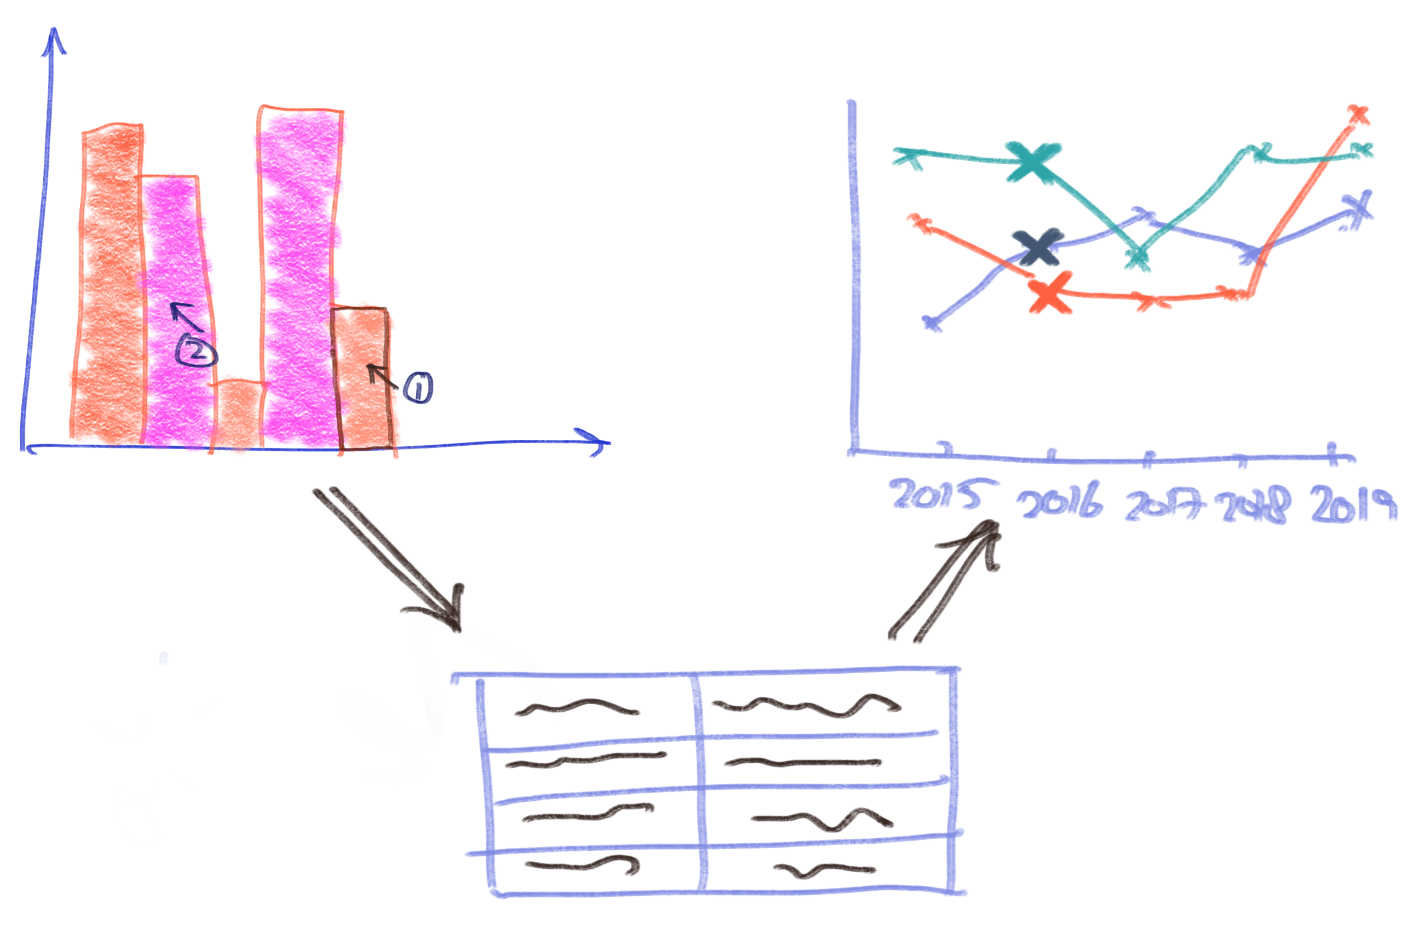 ②
①
2015 2016 2017 2018 2019